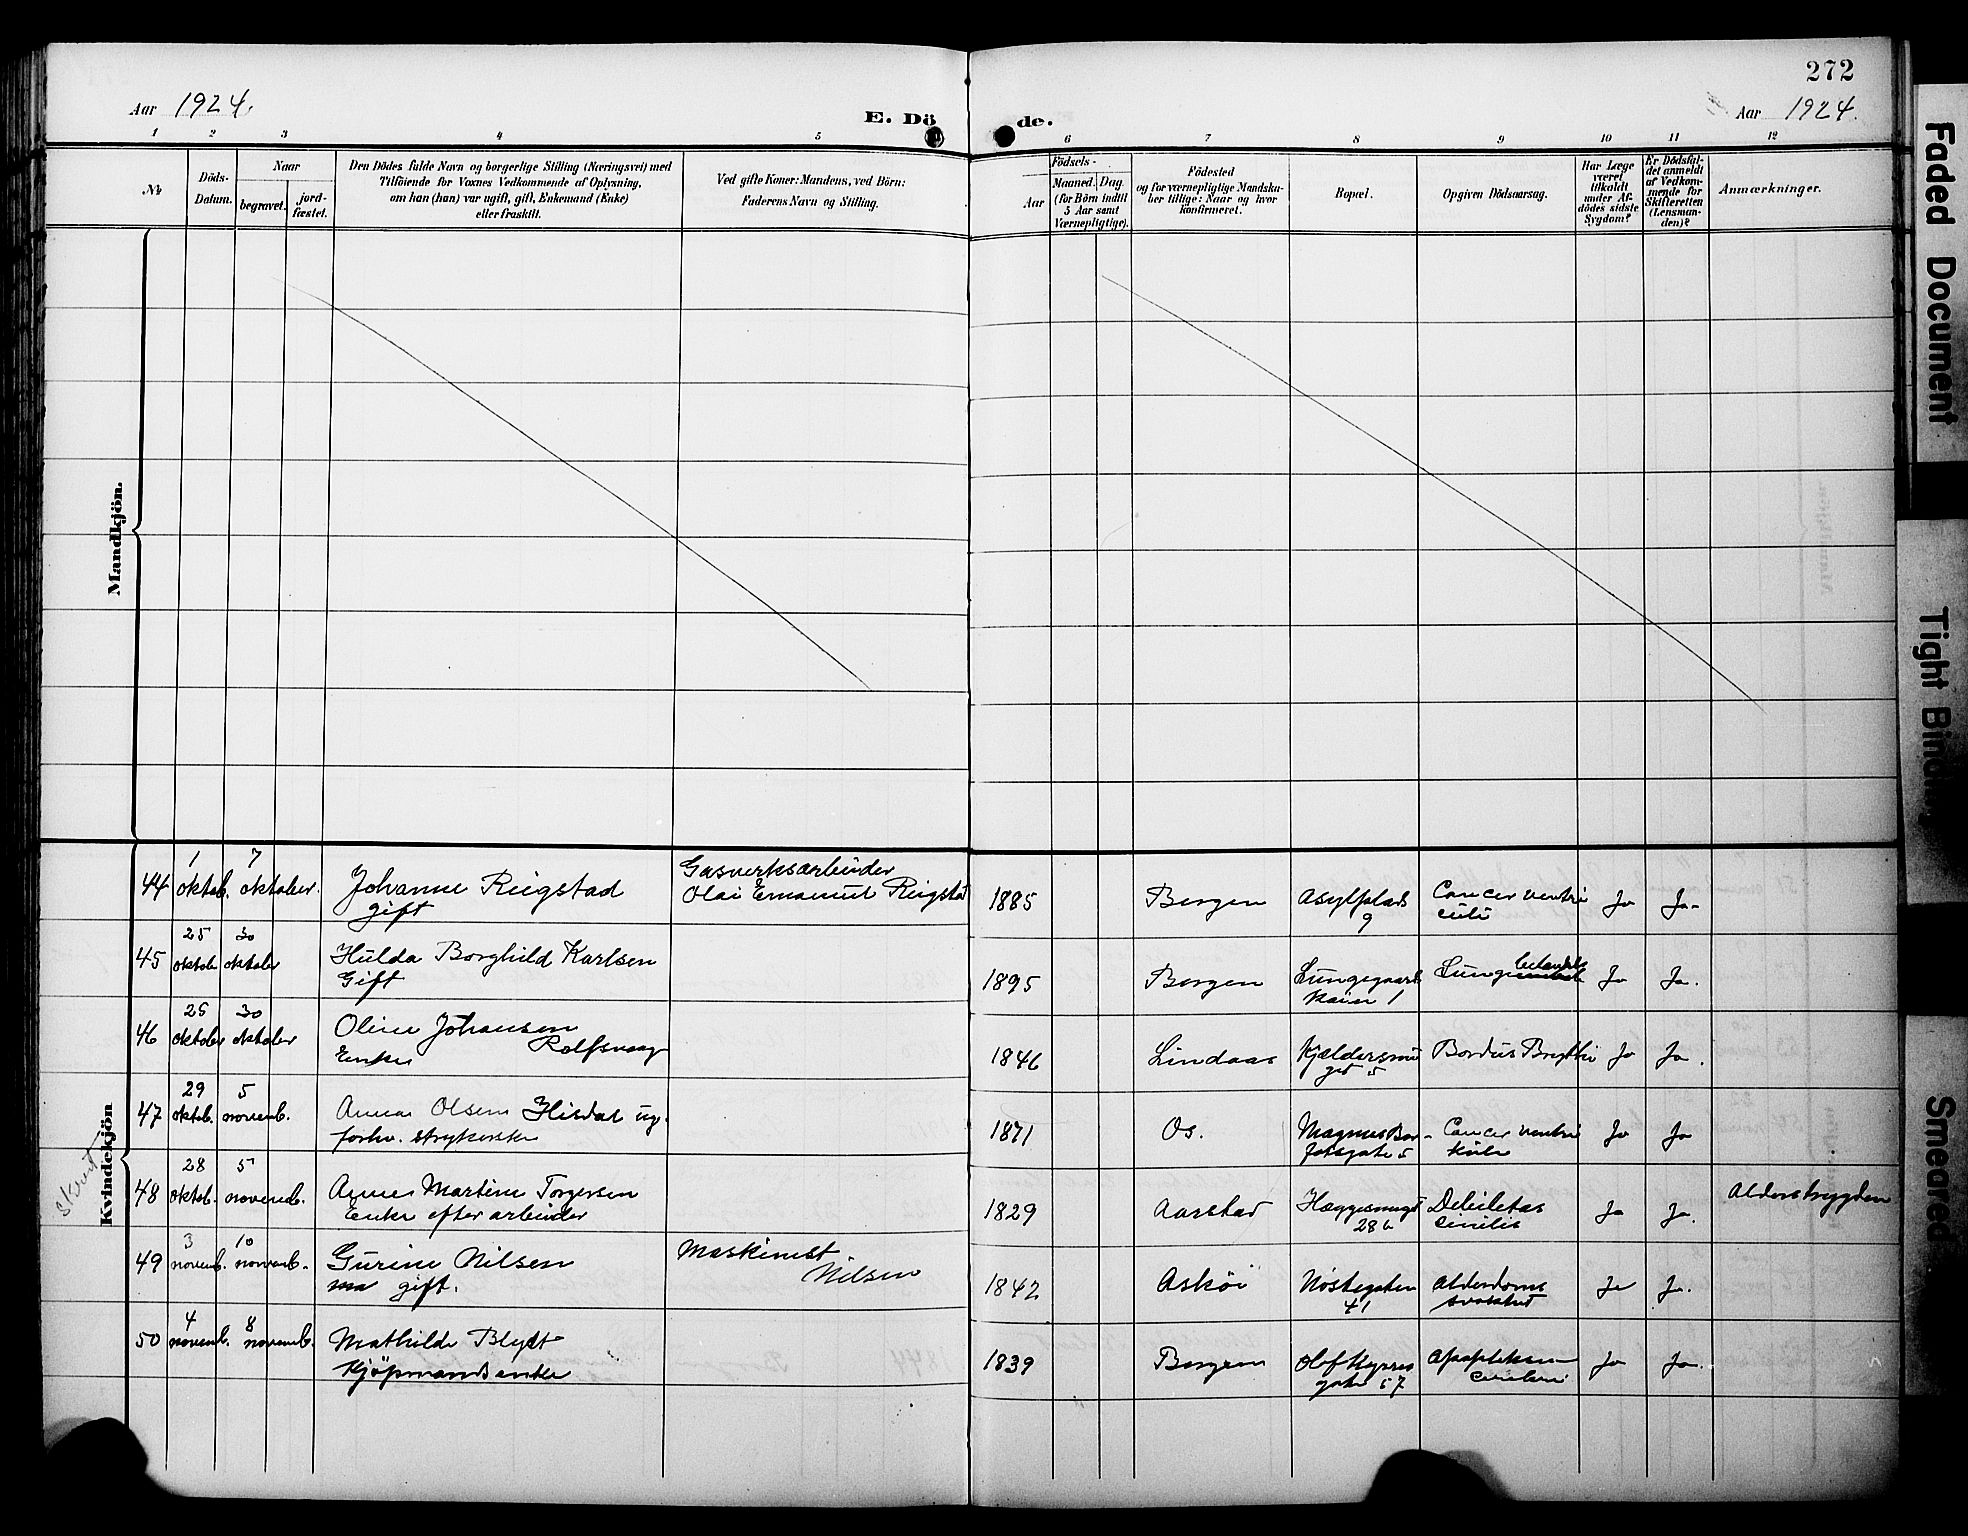 272
Aar 1924.
E. Dö
de.
Aar 1924.
1 2 3 4 5 6 7 8 9 10 11 12
№
Döds-
Datum.
Naar
begravet.
jord-
fæstet.
Den Dödes fulde Navn og borgerlige Stilling (Næringsvei) med
Tilföiende for Voxnes Vedkommende af Oplysning,
om han (hun) var ugift, gift, Enkemand (Enke)
eller fraskilt.
Ved gifte Koner: Mandens, ved Börn:
Faderens Navn og Stilling.
Födsels-
Aar
Maaned. Dag.
(for Börn indtil
5 Aar samt
Værnepligtige).
Födested
og for værnepligtige Mandska-
ber tillige: Naar og hvor
konfirmeret.
Bopæl.
Opgiven Dödsaarsag.
Har Læge
været
tilkaldt
under Af-
dödes sidste
Sygdom?
Er Dödsfal-
det anmeldt
af Vedkom-
mende for
Skifteretten
(Lensman-
den)?
Anmærkninger.
Mandkjön.
Kvindekjön
44
1
oktob.
7
oktober.
Johanne Ringstad
gift
Gasverksarbeider
Olai Emanuel Ringstad
1885
Bergen
Asylplads
9
Cancer ventri
culi
Ja
Ja
45
25
oktob
30
oktober
Hulda Borghild Karlsen
Gift
1895
Bergen
Lungegaards
kaien 1
Lunge
Ja
Ja.
46
25
oktober
30
oktober
Oline Johansen
Rolfsvaag
Enke
1846
Lindaas
Kjældersmu
get 5
Ja
Ja.
47
29
oktob.
5
novemb.
Anna Olsen Hisdal ug.
forhv. strykerske
1871
Os.
Magnus Bar-
fotsgate 5
Cancer ventri
kuli
Ja
Ja
48
28
oktob.
5
novemb.
Anne Martine Torgersen
Enke efter arbeider
1829
Aarstad
Heggesmuget
28 b
Debilitas
senilis
Ja
Ja.
Alderstrygden
49
3
novemb.
10
novemb.
Gurine Nilsen
gift.
Maskinist
Nilsen
1842
Askøi
Nøstegaten
41
Alderdoms
svakhet
Ja
Ja.
50
4
novemb.
8
novemb.
Mathilde Blydt
Kjøpmandsenke
1839
Bergen
Olaf Kyrres
gate 57
Ja
Ja.
Faded Document
Tight Binding
Smeared